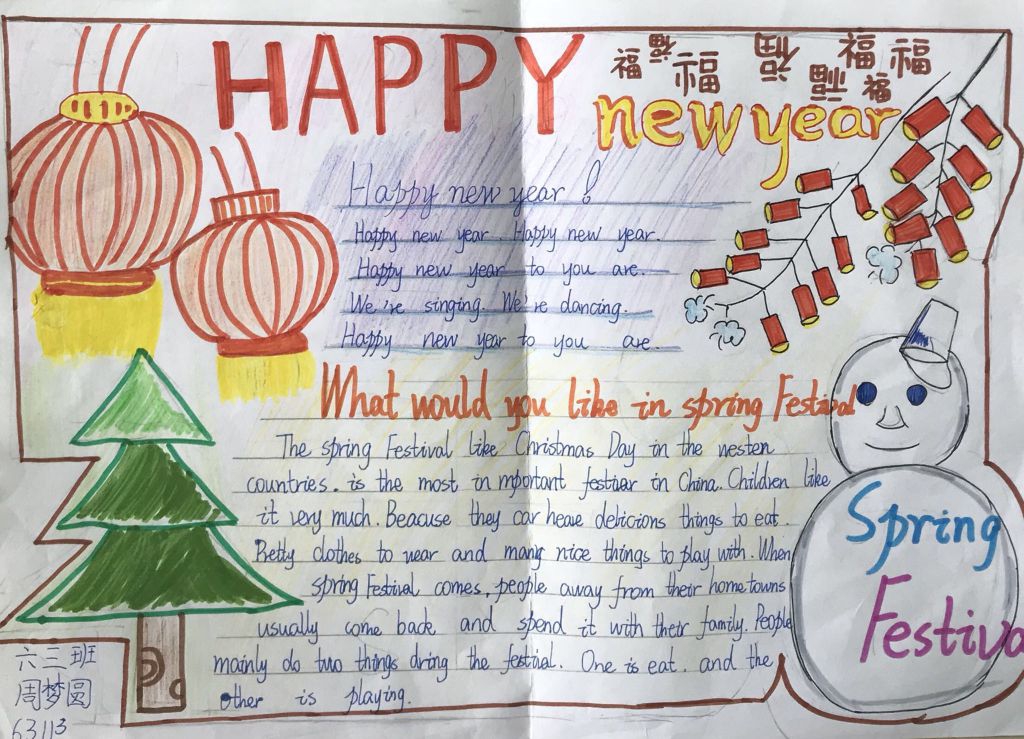 HAPPY
福 福 福 福 福 福 福 福
new year
Happy new year!
Happy new year. Happy new year.
Happy new year to you are.
We're singing. We're dancing.
Happy new year to you are.
What would you like in spring Festival
The spring Festival like Christmas Day in the nesten
countries. is the most in mportant festiver in China. Children like
it very much. Beacuse they car heave delicions things to eat.
Pretty clothes to wear and many nice things to play with. When
spring Festival comes, people away from their home towns
usually come back and spend it with their family. People
mainly do two things dring the festival. One is eat. and the
other is playing.
Spring
Festival
六三班
周梦圆
63113